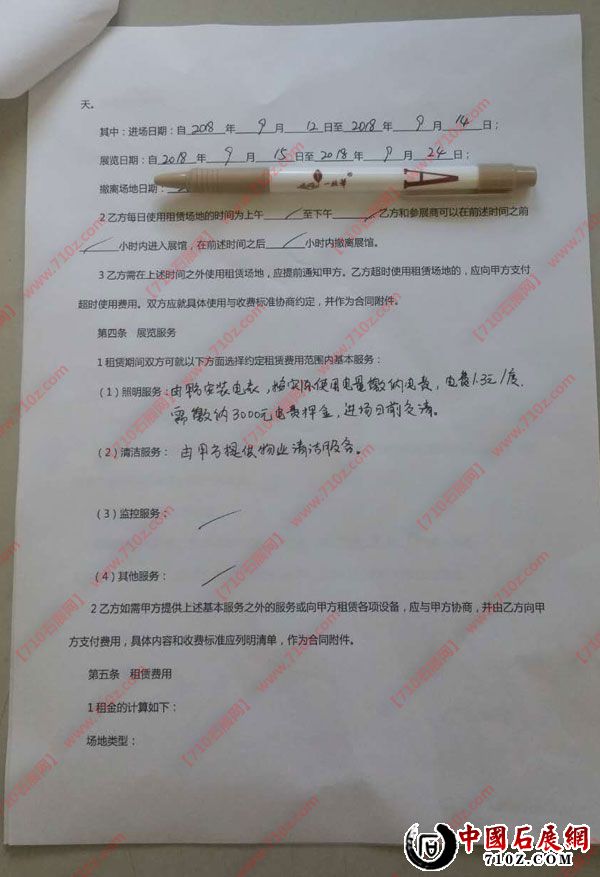 天。
其中：进场日期：自2018年9月12日至2018年9月14日；
展览日期：自2018年9月15日至2018年9月24日；
撤离场地日期：
一线华
A
2乙方每日使用租赁场地的时间为上午 / 至下午 / 乙方和参展商可以在前述时间之前
/ 小时内进入展馆，在前述时间之后 / 小时内撤离展馆。
3乙方需在上述时间之外使用租赁场地，应提前通知甲方。乙方超时使用租赁场地的，应向甲方支付
超时使用费用。双方应就具体使用与收费标准协商约定，并作为合同附件。
第四条 展览服务
1租赁期间双方可就以下方面选择约定租赁费用范围内基本服务：
（1）照明服务：由甲方安装电表，按实际使用电量缴纳电费，电费1.3元/度.
需缴纳3000元电费押金，进场日前交清。
（2）清洁服务：由甲方提供物业清洁服务。
（3）监控服务： /
（4）其他服务： /
2乙方如需甲方提供上述基本服务之外的服务或向甲方租赁各项设备，应与甲方协商，并由乙方向甲
方支付费用，具体内容和收费标准应列明清单，作为合同附件。
第五条 租赁费用
1租金的计算如下：
场地类型：
【710石展网】 www.710z.com
中國石展網
710Z.COM